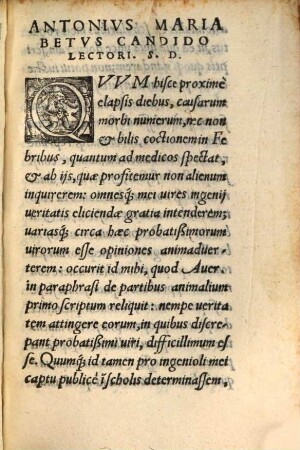 ANTONIVS MARIA
BETVS CANDIDO
LECTORI. S. D.
QVVM hisce proxime
elapsis diebus, causarum
morbi numerum, nec non
& bilis coctionem in Fe
bribus, quantum ad medicos spectat,
& ab ijs, quæ profitemur non alienum
inquirerem: omnesq́; mei uires ingenij
ueritatis eliciendæ gratia intenderem;
uariasq́; circa hæc probatißimorum
uirorum esse opiniones animaduer-
terem: occurit id mihi, quod Auer.
in paraphrasi de partibus animalium
primo scriptum reliquit: nempe uerita
tem attingere eorum, in quibus discre-
pant probatißimi uiri, difficillimum es
se. Quumq́; id tamen pro ingenioli mei
captu publicè ī scholis determinassem,